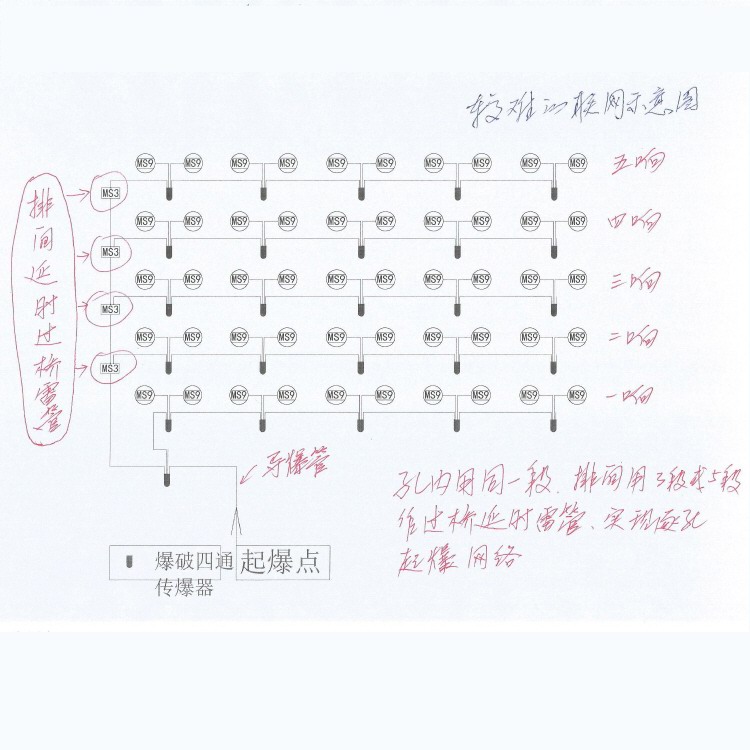 较难的联网示意图
MS9 MS9 MS9 MS9 MS9 MS9 MS9 MS9 MS9 MS9 五响
MS3
MS9 MS9 MS9 MS9 MS9 MS9 MS9 MS9 MS9 MS9 四响
MS3
MS9 MS9 MS9 MS9 MS9 MS9 MS9 MS9 MS9 MS9 三响
MS3
MS9 MS9 MS9 MS9 MS9 MS9 MS9 MS9 MS9 MS9 二响
MS3
MS9 MS9 MS9 MS9 MS9 MS9 MS9 MS9 MS9 MS9 一响
排间延时过桥雷管
导爆管
孔内用同一段、排间用3段或5段
作过桥延时雷管、实现逐孔
起爆网络
爆破四通
传爆器
起爆点